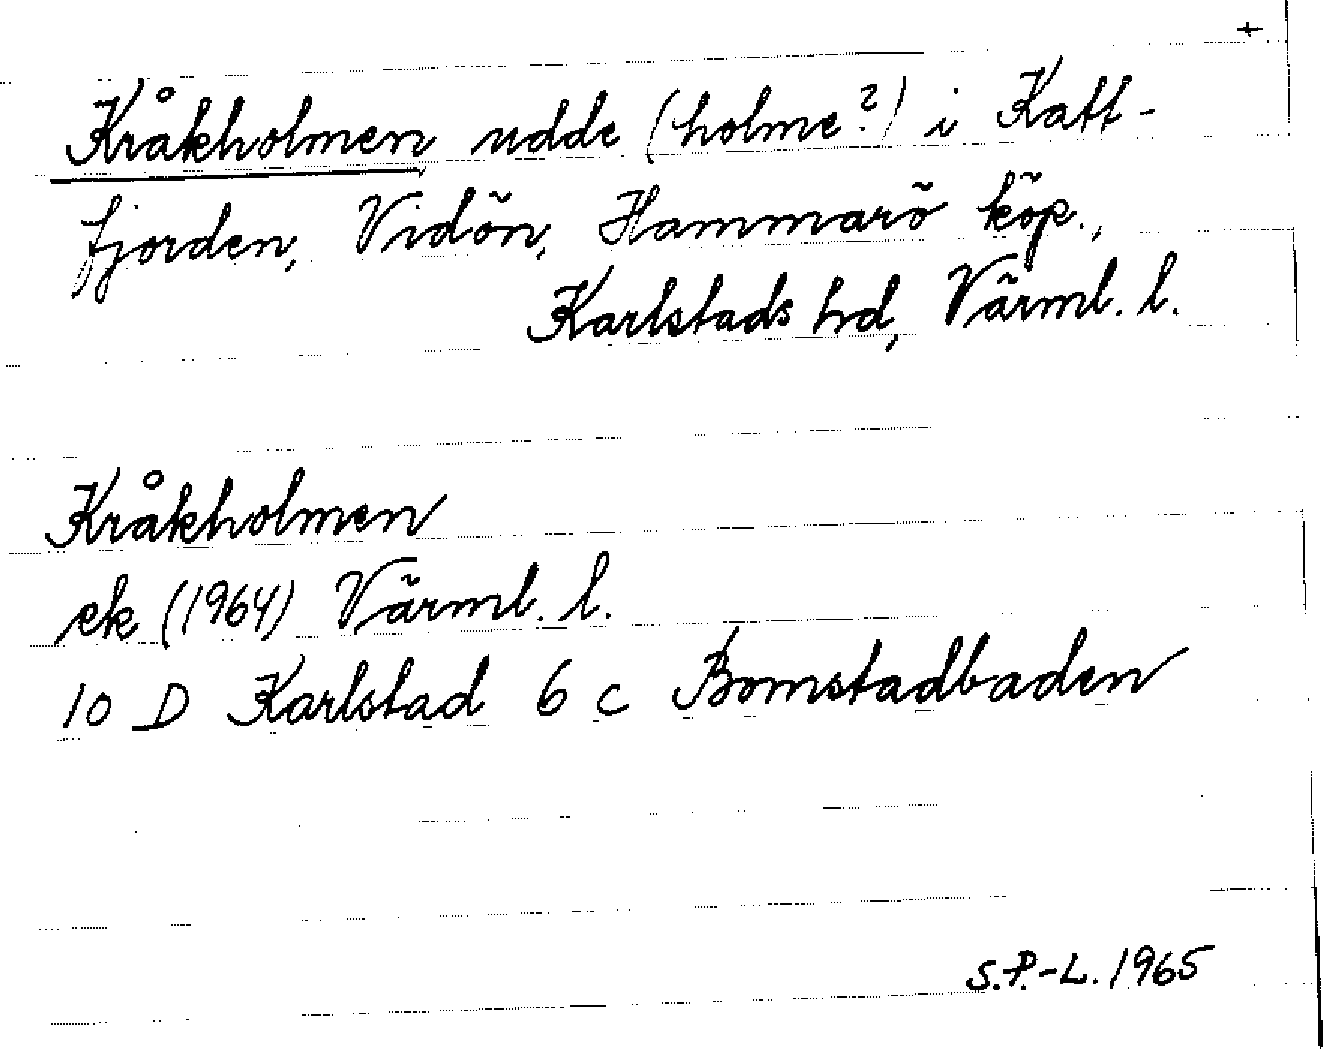 +
Kråkholmen udde (holme?) i Katt-
fjorden, Vidön, Hammarö köp.,
Karlstads hd, Värml. l.
Kråkholmen
ek (1964) Värml. l.
10 D Karlstad 6 c Bomstadbaden
S.P.-L. 1965